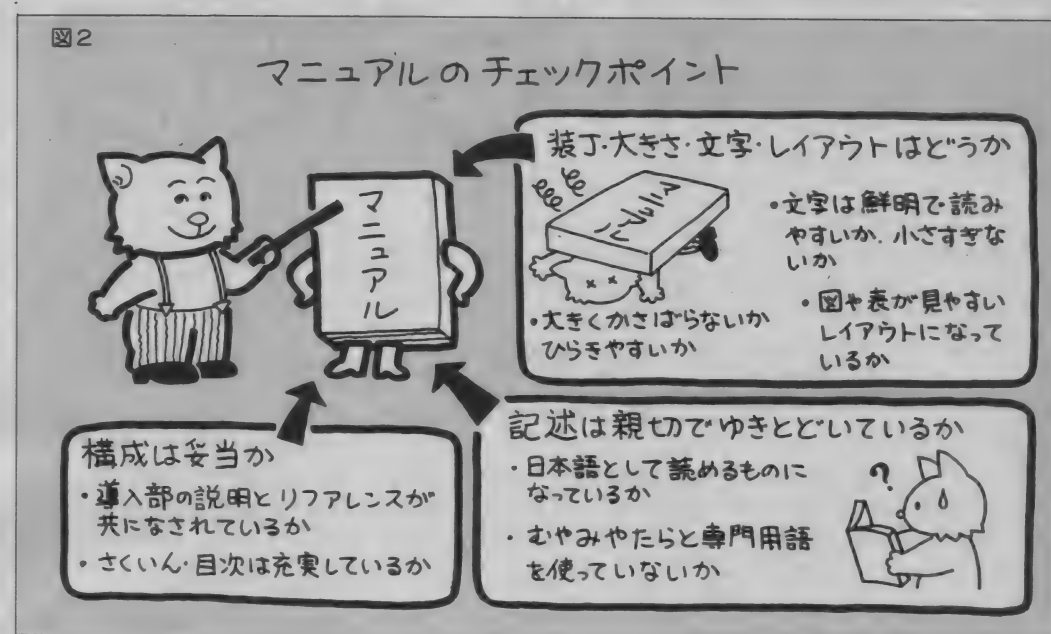 図2
マニュアルのチェックポイント
マニュアル
装丁・大きさ・文字・レイアウトはどうか
マニュアル
・文字は鮮明で読み
やすいか、小さすぎな
いか
・大きくかさばらないか
ひらきやすいか
・図や表が見やすい
レイアウトになって
いるか
構成は妥当か
・導入部の説明とリファレンスが
共になされているか
・さくいん・目次は充実しているか
記述は親切でゆきとどいているか
・日本語として読めるものに
なっているか
・むやみやたらと専門用語
を使っていないか
?